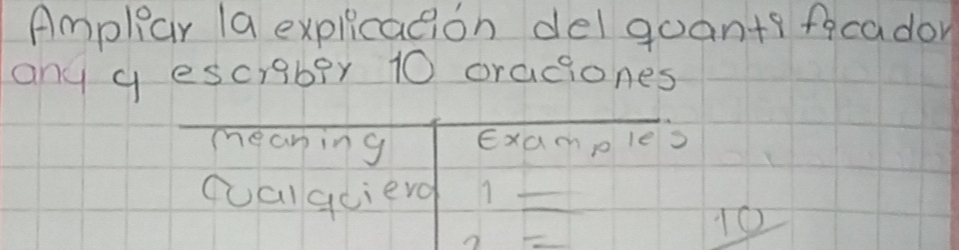 Ampliar la explicación del quantificador
any y escribir 10 oraciones
meaning Examples
Cualquiera 1 =
10
2 =